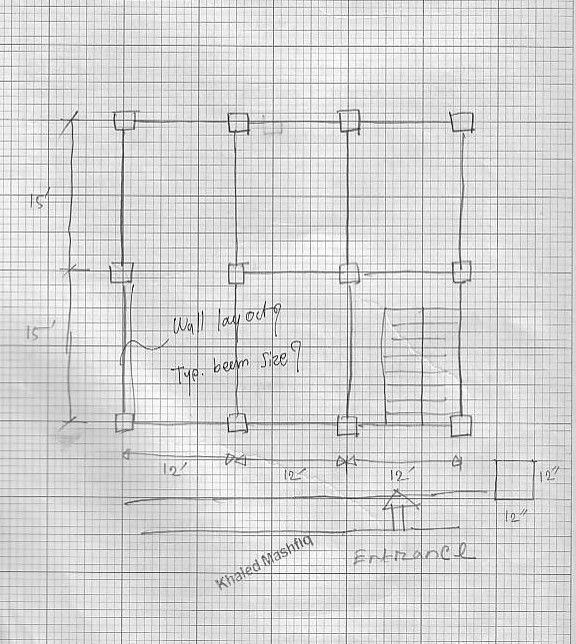 15'
15'
Wall layout?
Typ. beam size?
12' 12' 12'
12"
12"
Entrance
Khaled Mashfiq